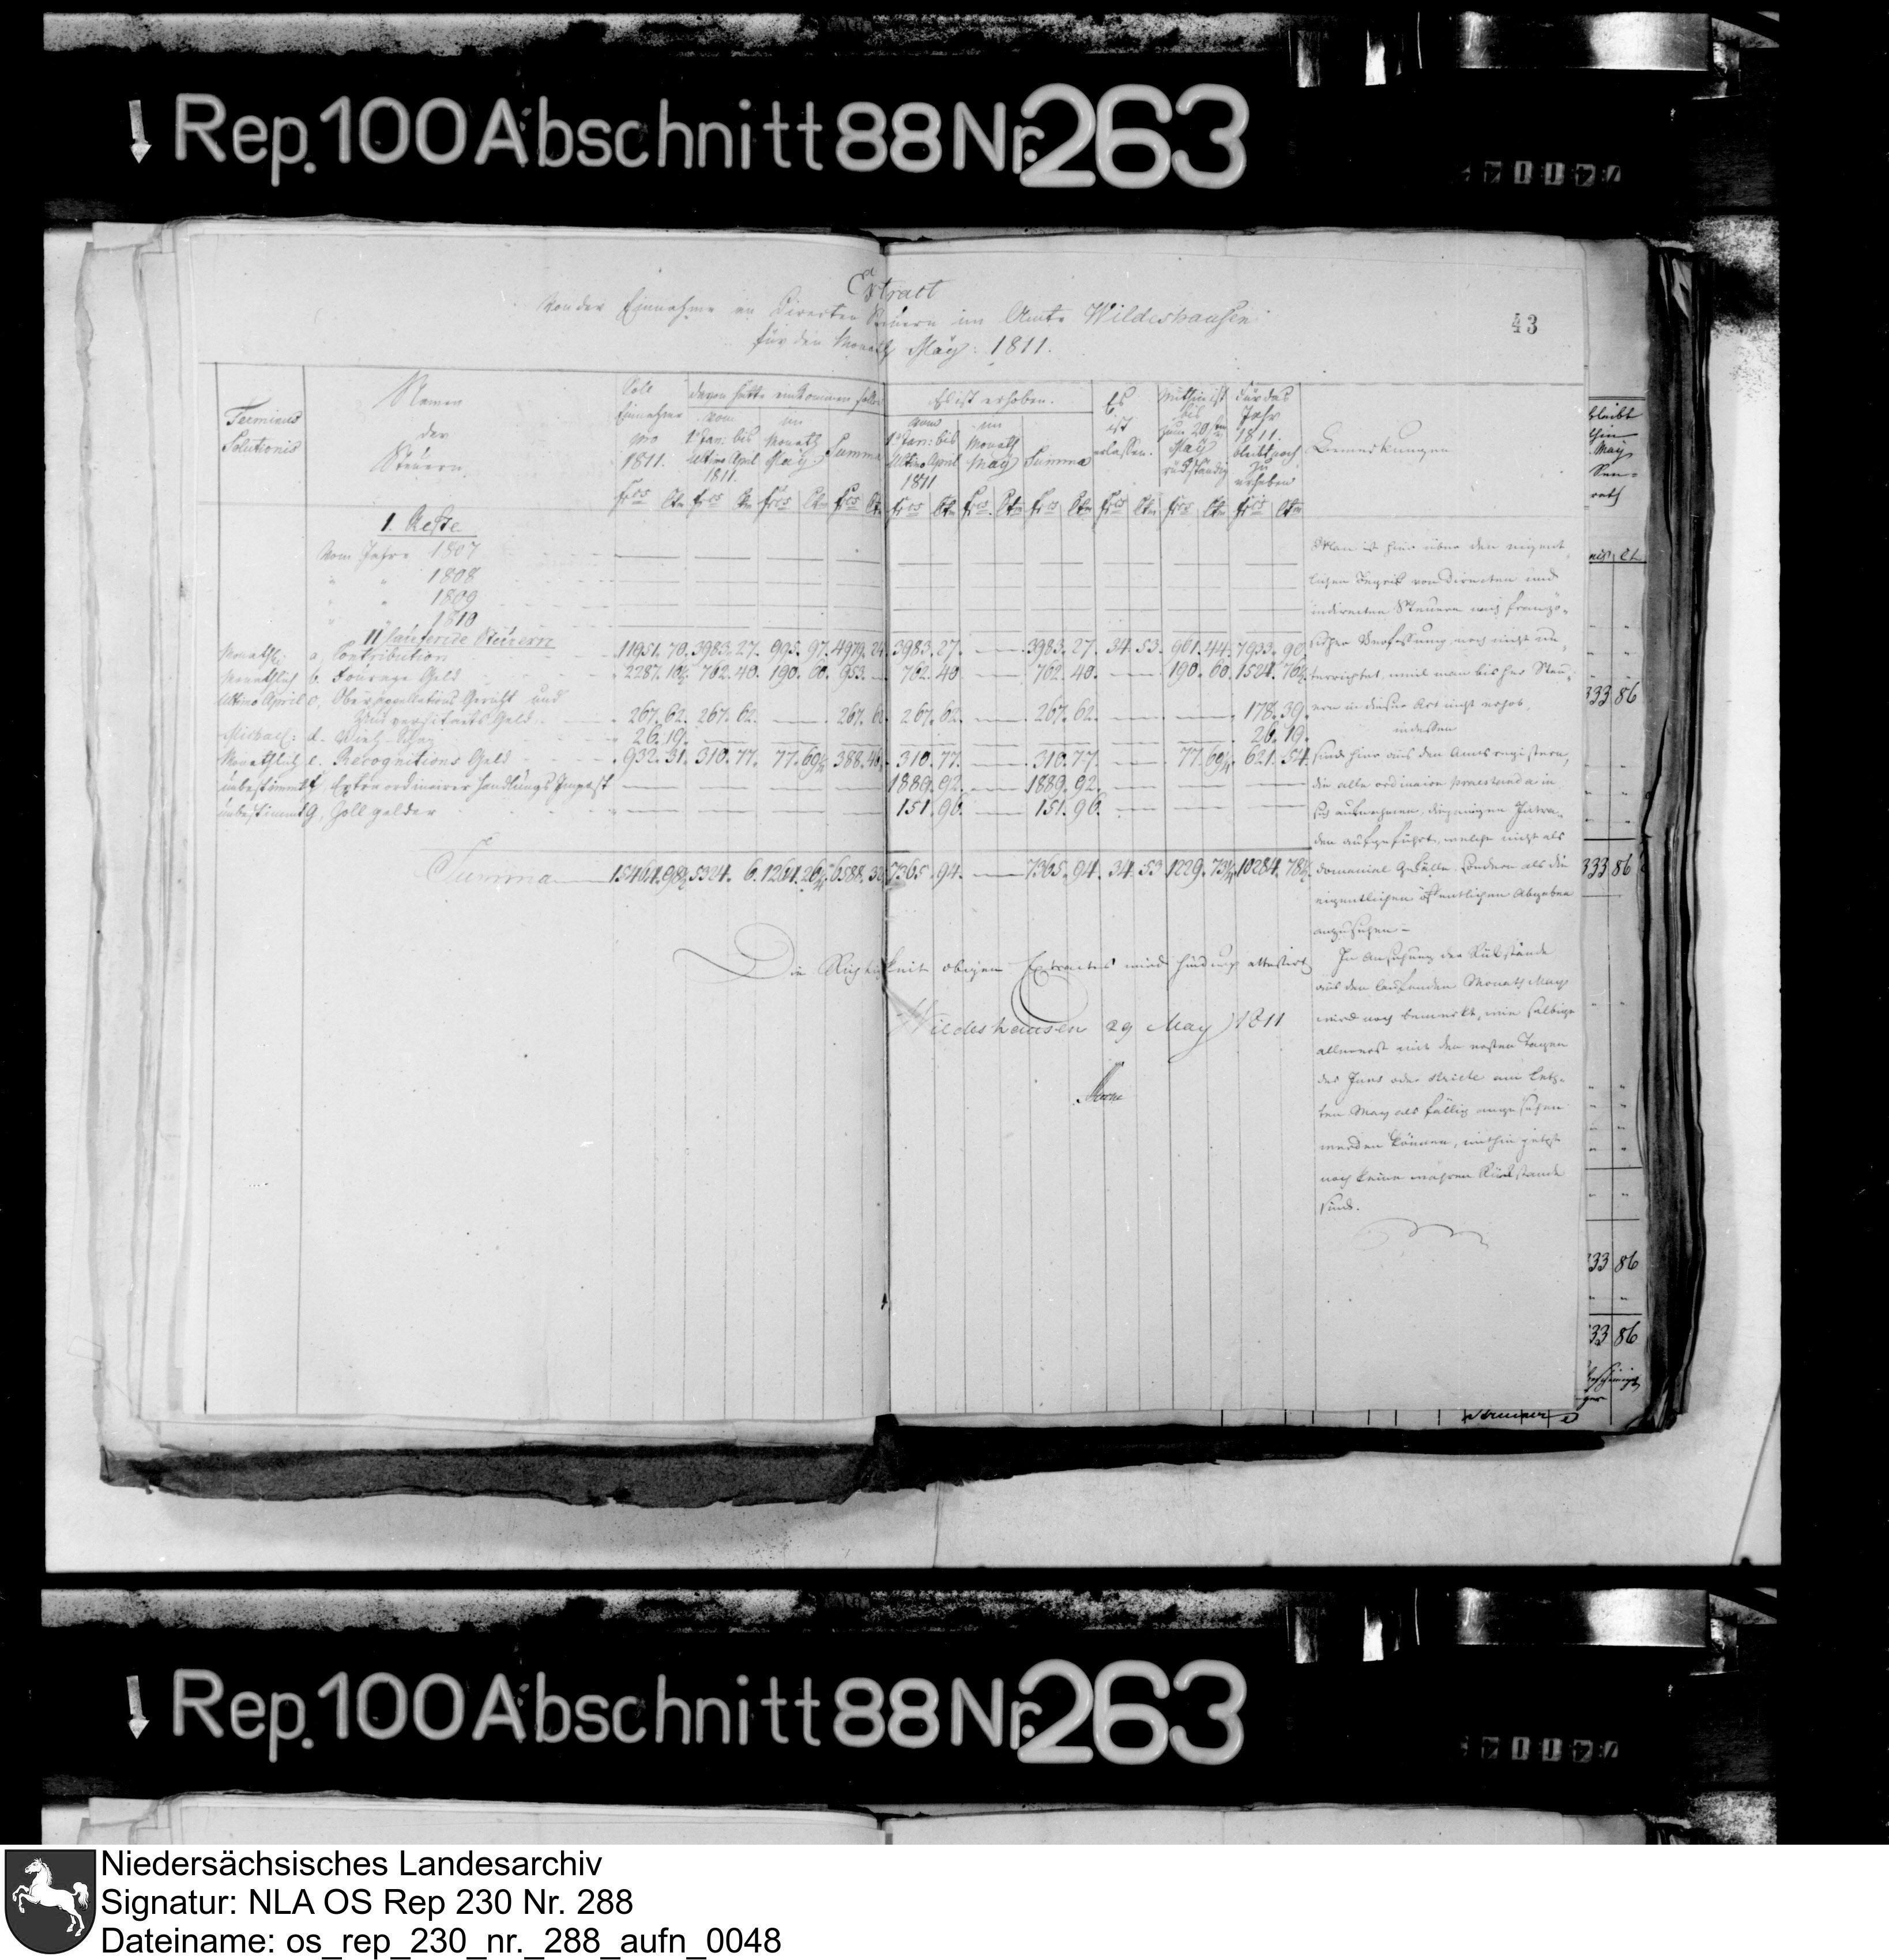 Rep. 100 Abschnitt 88 Nr. 263
Extract
von der Einnahme an Directen Steuern im Amte Wildeshausen
für den Monath May: 1811.
43
Terminus Solutionis
Namen der Steuern
Soll Einnahme pro 1811. frcs Ctm
davon hätte einkommen sollen
vom 1t Jan: bis ultimo April 1811. frcs Ctm
im Monath May frcs Ctm
Summa frcs Ctm
Es ist erhoben.
vom 1t Jan: bis ultimo April 1811 frcs Ctm
im Monath May frcs Ctm
Summa frcs Ctm
Es ist erlassen. frcs Ctm
Mithin ist bis zum 20sten May rückständig frcs Ctm
Für das Jahr 1811. bleibt noch zu erheben frcs Ctm
Bemerkungen
I. Reste
Vom Jahre 1807
" " 1808
" " 1809
" " 1810
II laufende Steuern
Monathlich a, Contribution 11951. 70. 3983. 27. 995. 97. 4979. 24 3983. 27. — 3983. 27. 34. 53. 961. 44. 7933. 90.
Monathlich b. Fourage Geld 2287. 16½. 762. 40. 190. 60. 953. — 762. 40 — 762. 40. — 190. 60. 1524. 76½.
Ultimo April c, Oberappellations Gericht und
Universitaets Geld 267. 62. 267. 62. — 267. 62 267. 62. — 267. 62. — — 178. 39.
Michael: d. Vieh-Schatz 26. 19. — — — — — — — — 26. 19.
Monathlich e. Recognitions Geld 932. 31. 310. 77. 77. 69¼. 388. 46 310. 77. — 310. 77. — 77. 69¼. 621. 54.
unbestimmt f, Extraordinairer Handlungs Impost — — — — 1889. 92. — 1889. 92. — — —
unbestimmt g, Zoll gelder — — — — 151. 96. — 151. 96. — — —
Summa 15464. 98½ 5324. 6. 1264. 26¼ 6588. 32 7365. 94. — 7365. 94. 34. 53 1229. 73¼ 10284. 78½.
Man ist hier über den eigent-
lichen Begrif von directen und
indirecten Steuern nach franzö-
sischer Verfassung noch nicht un-
terrichtet, weil man bisher Steu-
ern in dieser Art nicht erhob,
indessen
sind hier aus den Amtsregistern,
die alle ordinaire praestanda in
sich aufnehmen, diejenigen Intra-
den aufgeführt, welche nicht als
domanial Gefälle, sondern als die
eigentlichen öffentlichen Abgaben
anzusehen —
In Ansehung der Rückstände
aus dem laufenden Monath May
wird noch bemerkt, wie selbige
allererst mit den ersten Tagen
des Juny oder stricte am letz-
ten May als fällig angesehen
werden können, mithin jetzt
noch keine wahren Rückstände
sind.
Die Richtigkeit obigen Extractes wird hiedurch attestirt
Wildeshausen 29 May 1811
bleibt
May
333 86
333 86
33 86
33 86
Rep. 100 Abschnitt 88 Nr. 263
Niedersächsisches Landesarchiv
Signatur: NLA OS Rep 230 Nr. 288
Dateiname: os_rep_230_nr._288_aufn_0048